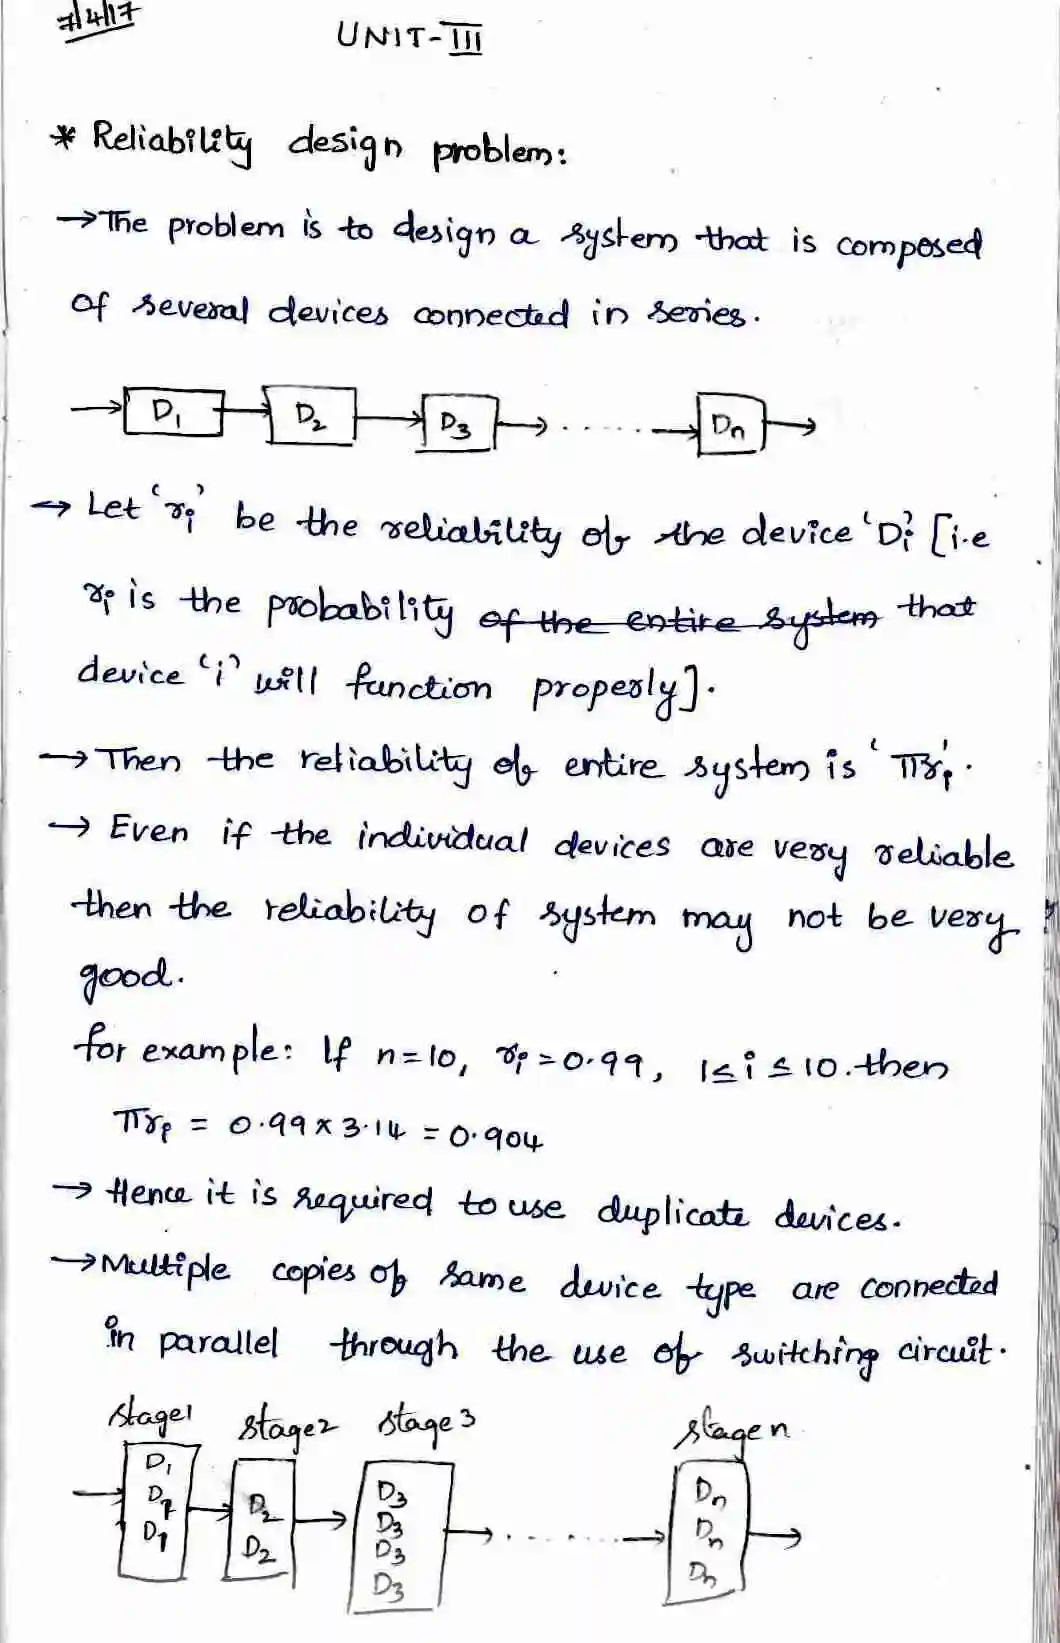 7/4/17
UNIT-III
* Reliability design problem:
→The problem is to design a system that is composed
of several devices connected in series.
D1 D2 D3 ...... Dn
→ Let 'ri' be the reliability of the device 'Di' [i.e
ri is the probability of the entire system that
device 'i' will function properly].
→ Then the reliability of entire system is 'πri'.
→ Even if the individual devices are very reliable
then the reliability of system may not be very
good.
for example: If n=10, ri=0.99, 1≤i≤10.then
πri = 0.99 x 3.14 = 0.904
→ Hence it is required to use duplicate devices.
→Multiple copies of same device type are connected
in parallel through the use of switching circuit.
stage1 stage2 stage3 stage n
D1 D3 Dn
D1 D2 D3 Dn
D1 D2 D3 Dn
D3